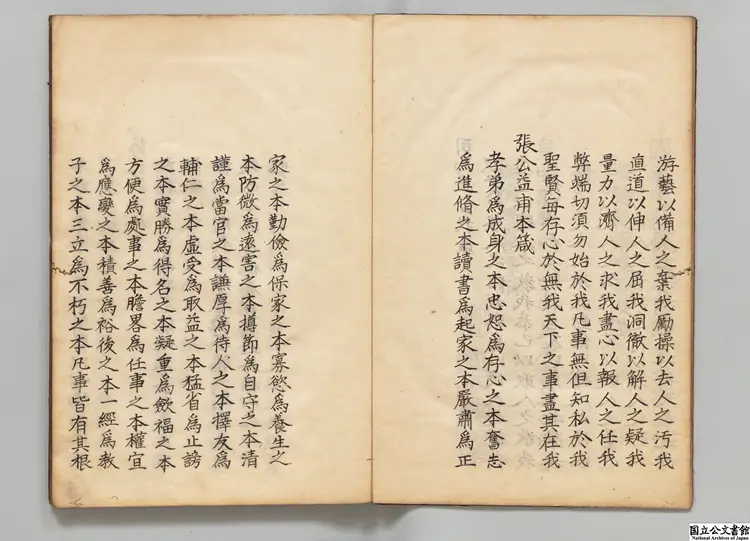 游藝以備人之棄我勵操以去人之污我
直道以伸人之屈我洞徹以解人之疑我
量力以濟人之求我盡心以報人之任我
弊端切須勿始於我凡事無但知私於我
聖賢每存心於無我天下之事盡其在我
張公益甫本箴
孝弟為成身之本忠恕為存心之本奮志
為進脩之本讀書為起家之本嚴肅為正
家之本勤儉為保家之本寡慾為養生之
本防微為遠害之本撙節為自守之本清
謹為當官之本謙厚為待人之本擇友為
輔仁之本虛受為取益之本猛省為止謗
之本實勝為得名之本凝重為歛福之本
方便為處事之本膽畧為任事之本權宜
為應變之本積善為裕後之本一經為教
子之本三立為不朽之本凡事皆有其根
国立公文書館
National Archives of Japan